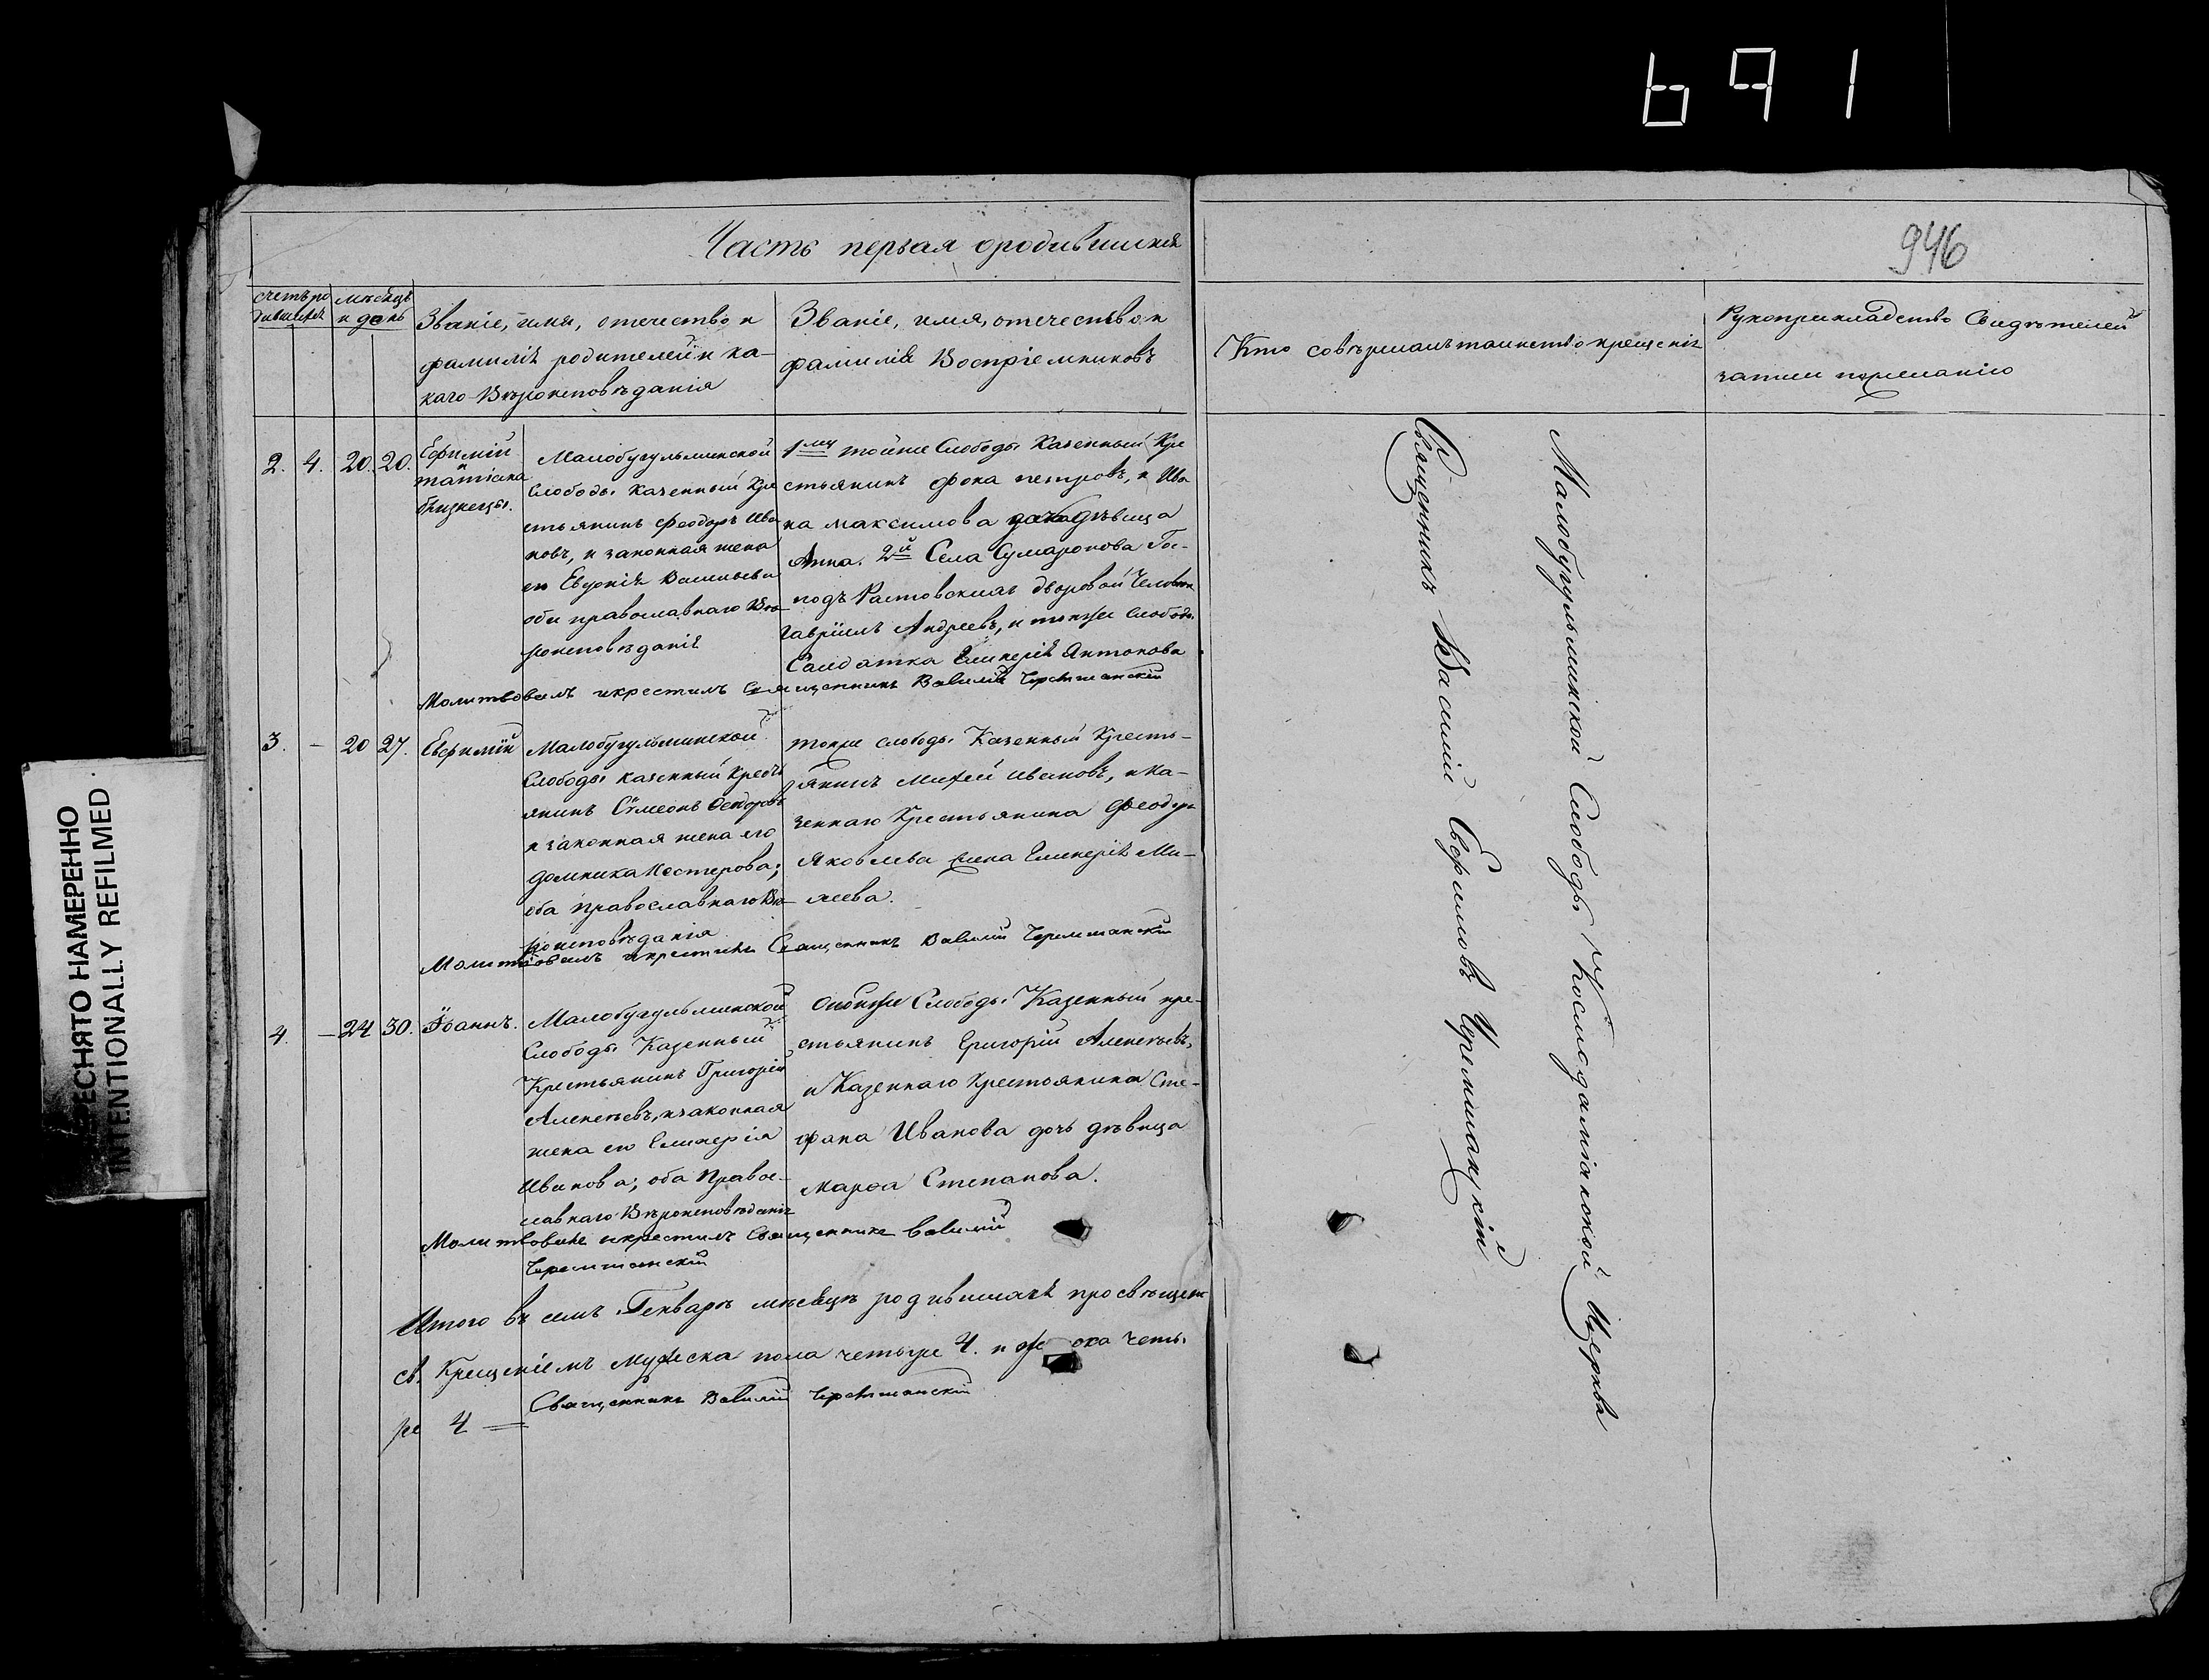 691
946
Часть первая ородившихся
счетъ ро
дившихся
мѣсяцъ
и день
Званіе, имя, отечество и
фамилія родителей и ка-
каго Вѣроисповѣданія
Званіе, имя, отечество и
фамилія Воспріемниковъ
Кто совѣршалъ таинство крещенія
Рукоприкладство Свидѣтелей
записи пожеланію
2. 4. 20. 20.
Ефимій
и
татіана
близнецы.
Малобугульминской
Слободы Казенный Кре
стьянинъ Феодоръ Ива
новъ, и законная жена
ею Евдокія Васильева
оби православнаго Вѣ-
роисповѣданія
1мъ тойже Слободы Казенный Кре
стьянинъ Фока петровъ, и Ива
на максимова дочь дѣвица
Анна. 2й Села Сумарокова Гос-
подъ Растовскихъ дворовой Человѣк
Гавріилъ Андреевъ, и тойже Слободы
Салдатка Гликерія Антонова
Молитвовалъ икрестилъ Священникъ Василій Черемшанскій
3. - 20 27.
Евфимій
Малобугульминской
Слободы казенный Кресть
янинъ Сѵмеонъ Ѳеодоровъ
и законная жена его
домника Нестерова;
оба православнаго Вѣ-
роисповѣданія
тойже слободы Казенный Кресть-
янинъ Михей Ивановъ, и Ка-
зеннаго Крестьянина Феодора
Яковлева жена Гликерія Ми-
хеева.
Молитвовалъ икрестилъ Священникъ Василій Черемшанскій
4. - 24 30.
Іоаннъ.
Малобугульминской
Слободы Казенный
Крестьянинъ Григорій
Алексѣевъ, и законная
жена ею Гликерія
Иванова; оба Правос-
лавнаго Вѣроисповѣданія
Слободы Казенный кре-
стьянинъ Григорій Алексѣевъ,
и Казеннаго Крестьянина Сте-
фана Иванова дочь дѣвица
марѳа Степанова.
Молитвовалъ икрестилъ Священникъ Василій
Черемшанскій
Итого въ семъ Генварѣ мѣсяцѣ родившихся просвѣщен
св. Крещеніемъ Мужеска пола четыре 4. и же ска четы
ре 4
Священникъ Василій Черемшанскій
Малобугульминской Слободы Космодаміанской Церкви
Священникъ Василій Ефимовъ Черемшанскій
ПЕРЕСНЯТО НАМЕРЕННО
INTENTIONALLY REFILMED